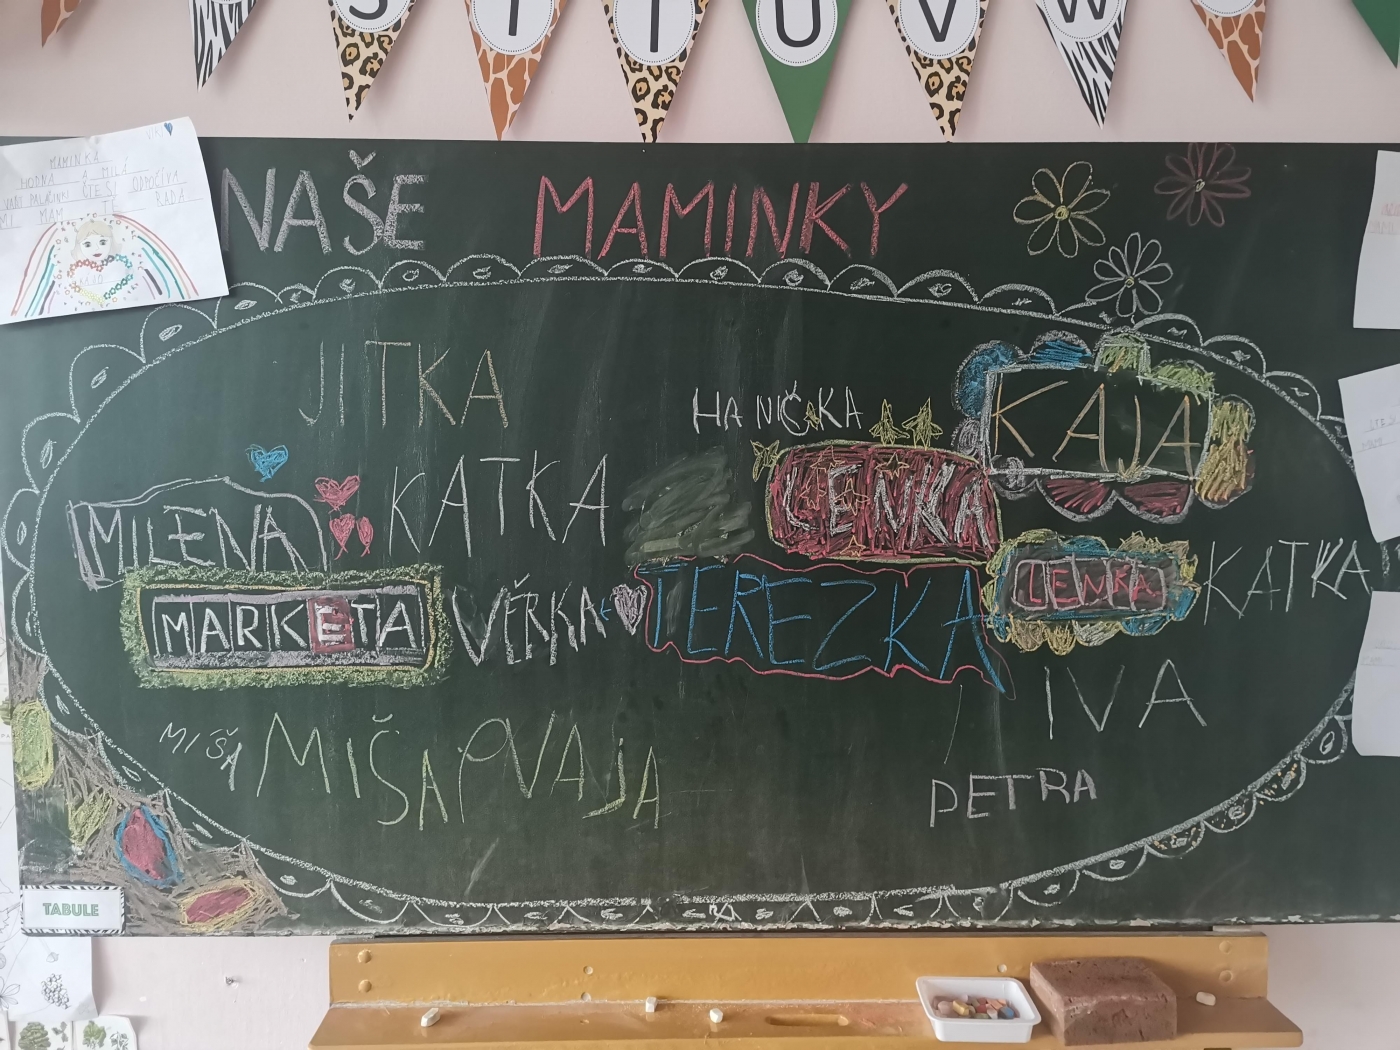 S T U V W
MAMINKA
HODNÁ A MILÁ
VAŘÍ PALAČINKI ČTE SI ODPOČÍVÁ
MI MÁM TĚ RÁDA
NAŠE MAMINKY
JITKA
HANIČKA
KAJA
KATKA
LENKA
MILENA
LENKA
KATKA
MARKETA
VĚRKA
TEREZKA
IVA
MIŠA
MIŠA
VAJA
PETRA
TABULE